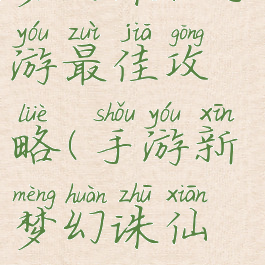 yóu zuì jiā gōng
游最佳攻
lüè shǒu yóu xīn
略(手游新
mèng huàn zhū xiān
梦幻诛仙